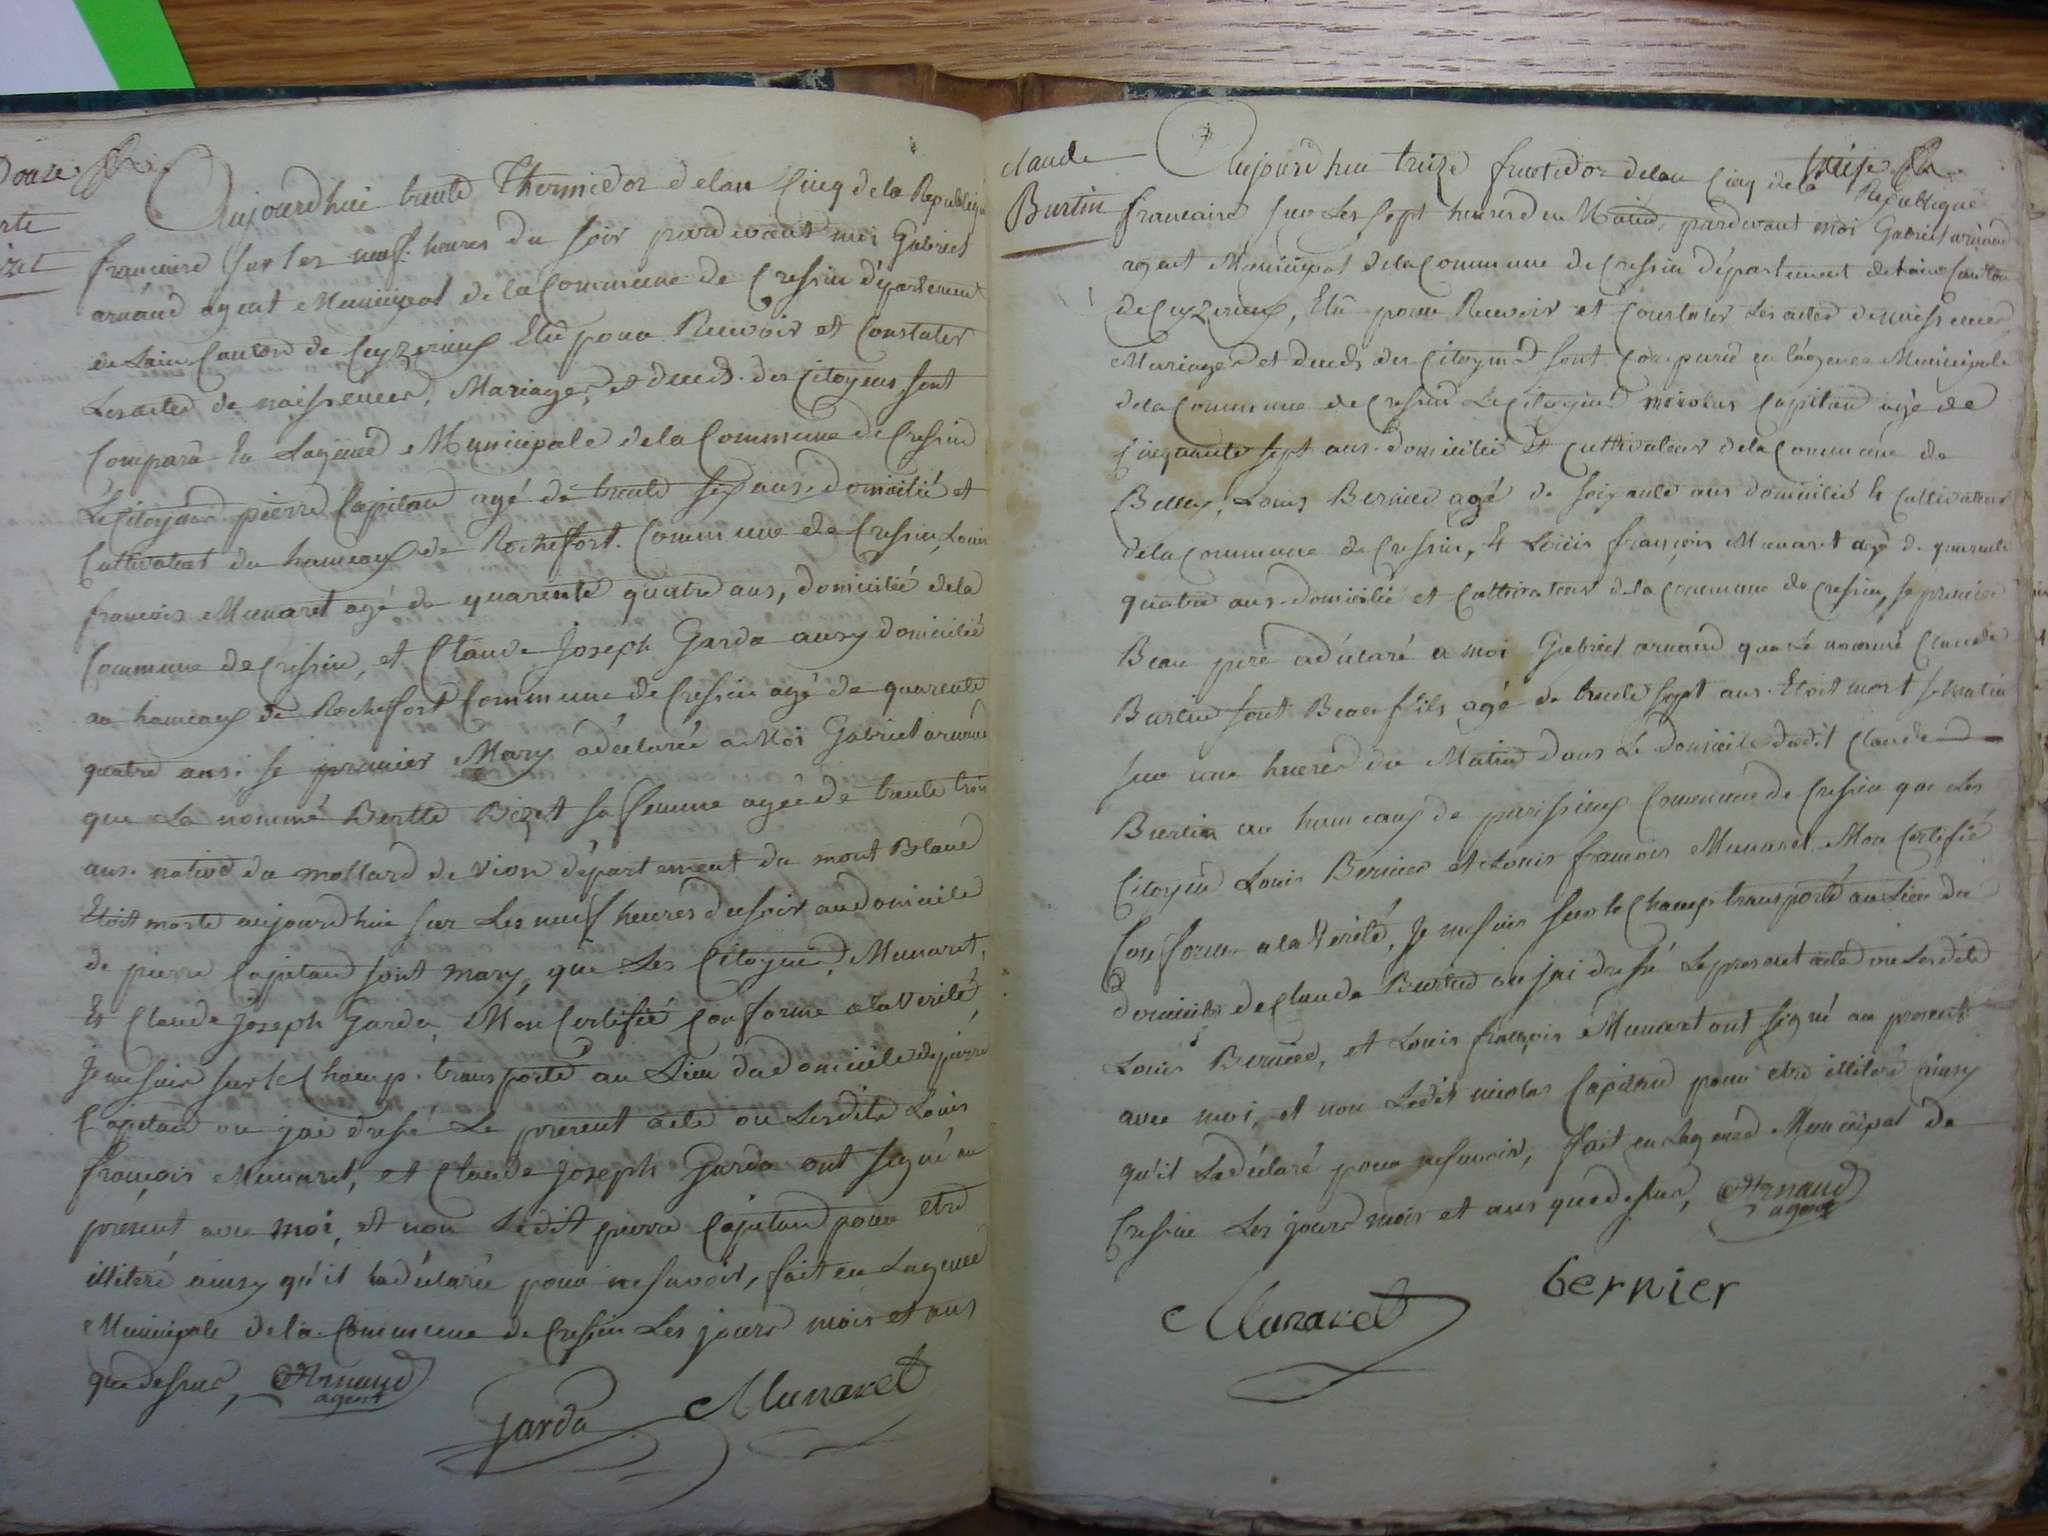 Douze
Aujourdhui trente Thermidor delan Cinq dela Republique
francaise sur les neuf heures du soir pardevant moi Gabriel
arnaud agent Municipal de la Commune de Cressin département
de Lain Canton de Ceyzerieux Elu pour Recevoir et Constater
Les actes de naissences, Mariages, et deces des Citoyens sont
Comparu En Lagence Municipale dela Commune de Cressin
Le Citoyen pierre Capitan agé de trente six ans domicilié et
Cultivateur du hameaux de Rochefort Commune de Cressin, Louis
francois Munaret agé de quarente quatre ans, domicilié dela
Commune de Cressin, et Claude Joseph Garda aussy domicilié
au hameaux de Rochefort Commune de Cressin agé de quarente
quatre ans. Le premier Mary adéclaré a Moi Gabriel arnaud
que La nommé Berthe Bizet sa femme agée de trente trois
ans. native du mollard de vion département du mont Blanc
Etoit morte aujourdhui sur Les neuf heures du soir au domicile
de pierre Capitan sont mary, que Les Citoyens Munaret,
Et Claude Joseph Garda, Mon Certifié Conforme ala Vérité,
Je me suis sur le Champ transporté au Lieu du domicile de pierre
Capitan ou jai dressé Le present acte ou Lesdits Louis
françois Munaret, et Claude Joseph Garda ont signé au
présent avec moi, et non Ledit pierre Capitan pour etre
illiteré ainsy qu'il ladéclaré pour ne savoir, fait en Lagence
Municipale dela Commune de Cressin Les jours mois et ans
que dessus, Arnaud
agent
Garda Munaret
treize
claude
Burtin
Aujourdhui treize fructidor delan Cinq dela Republique
francaise sur Les sept heures du Matin, pardevant moi Gabriel arnaud
agent Municipal dela Commune de Cressin département de Lain Canton
de Ceyzerieux, Elu pour Recevoir et Constater Les actes de naissences,
Mariages et deces des Citoyens sont Comparu en Lagence Municipale
dela Commune de Cressin Le Citoyen nicolas Capitan agé de
Cinquante sept ans domicilié et Cultivateur dela Commune de
Belley, Louis Bernier agé de soixante ans domicilié et Cultivateur
dela Commune de Cressin, et Louis françois Munaret agé de quarente
quatre ans domicilié et Cultivateur dela Commune de Cressin, Le premier
Beau père adéclaré a moi Gabriel arnaud que Le nommé Claude
Burtin sont Beau fils agé de trente sept ans. Etoit mort ce Matin
sur une heures du Matin dans Le domicile dudit Claude
Burtin au hameaux de parissieux Commune de Cressin que Les
Citoyens Louis Bernier et Louis francois Munaret Mon Certifié
Conforme ala Vérité, Je me suis sur le Champ transporté au Lieu du
domicile de Claude Burtin ou jai dressé Le present acte ou Lesdits
Louis Bernier, et Louis françois Munaret ont signé au present
avec moi, et non Ledit nicolas Capitan pour etre illiteré ainsy
qu'il Ladéclaré pour ne savoir, fait en Lagence Municipal de
Cressin Les jours mois et ans que dessus, Arnaud
agent
bernier
Munaret